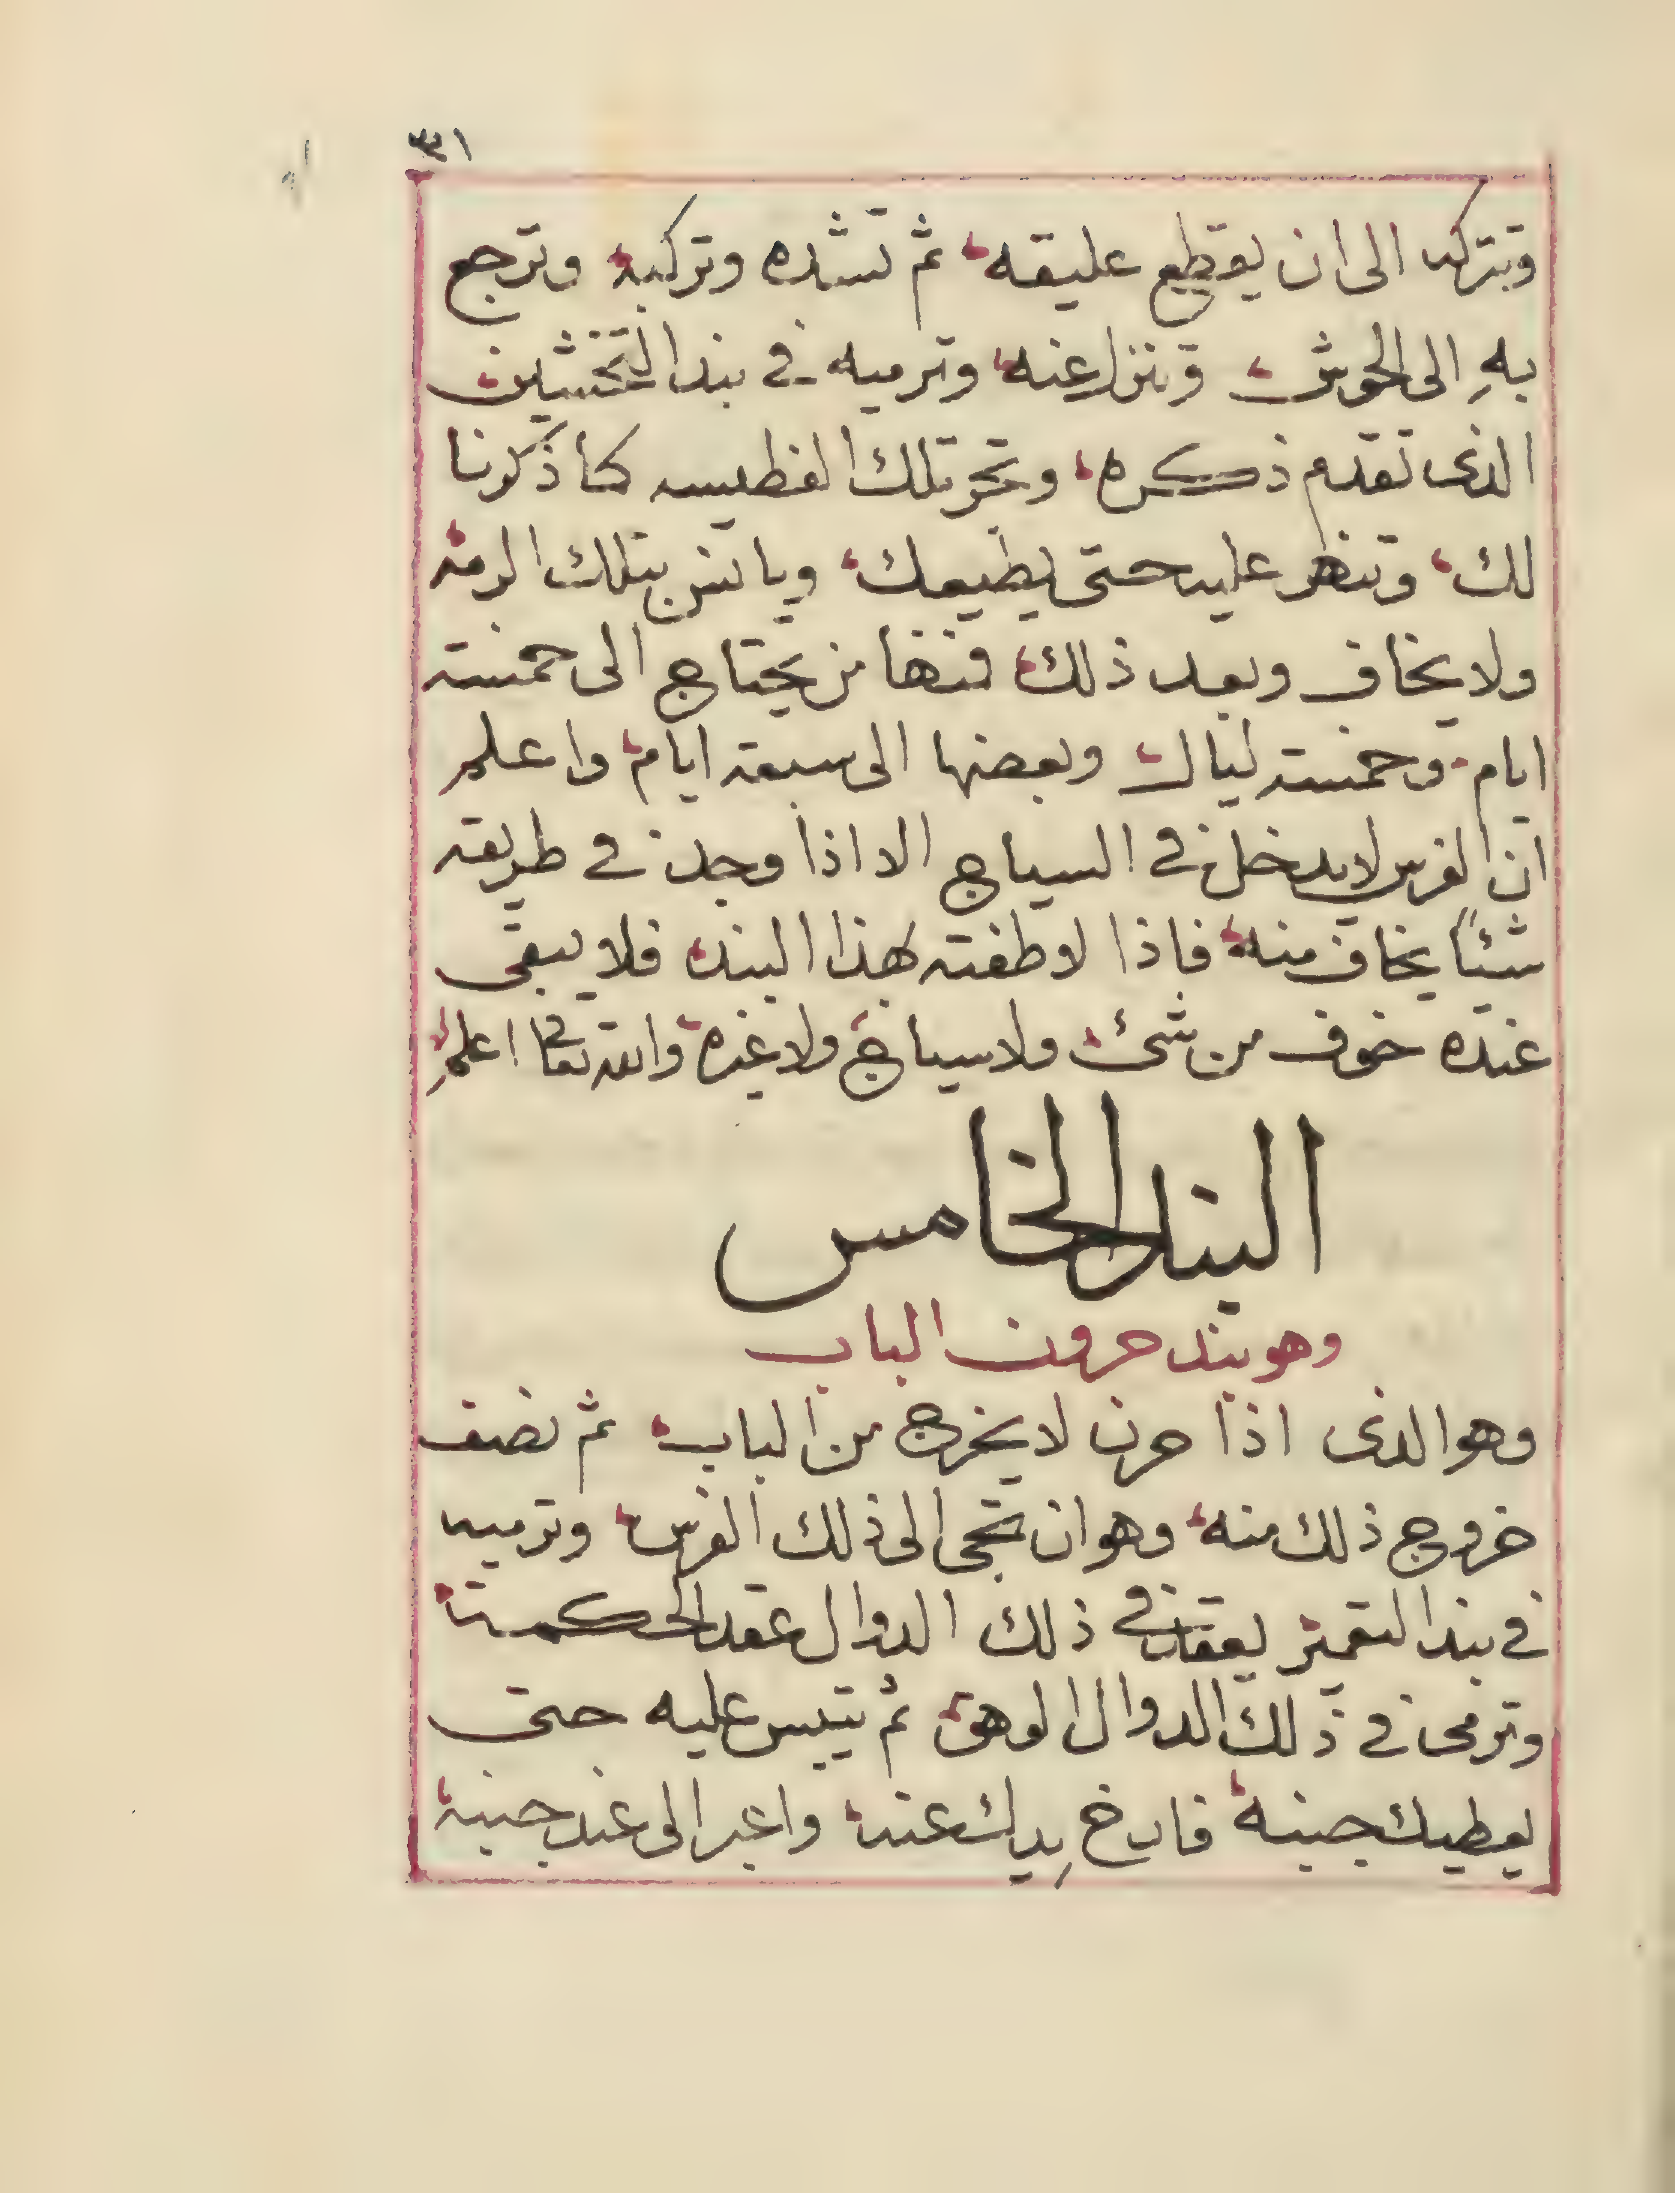 ١٣١
وتتركه الى ان يقطع عليقه ثم تشده وتركبه وترجع
بهِ الى الحوش وتنزل عنه وترميه فى بند التخشين
الذى تقدم ذكره وتجر تلك الفطيسه كما ذكرنا
لك وتنظر عليه حتى يطيعك ويانس بتلك الرمة
ولا يخاف وبعد ذلك فمنها من يحتاج الى خمسة
ايام وخمسة ليال وبعضها الى سبعة ايام واعلم
ان الفرس لا يدخل فى السياج الا اذا وجد فى طريقه
شيئاً يخاف منه فاذا لاطفته بهذا البند فلا يبقى
عنده خوف من شئ ولا سياج ولا غيره والله تعالى اعلم
البند الخامس
وهو بند حرون الباب
وهو الذى اذا حرن لا يخرج من الباب ثم نصف
خروج ذلك منه وهو ان تجى الى ذلك الفرس وترميه
فى بند التقميز يعقد فى ذلك الدوال عقد الحكمة
وترمى فى ذلك الدوال الوهق ثم تيبس عليه حتى
يعطيك جنبه فارخ يدك عنه واعبر الى عند جنبه